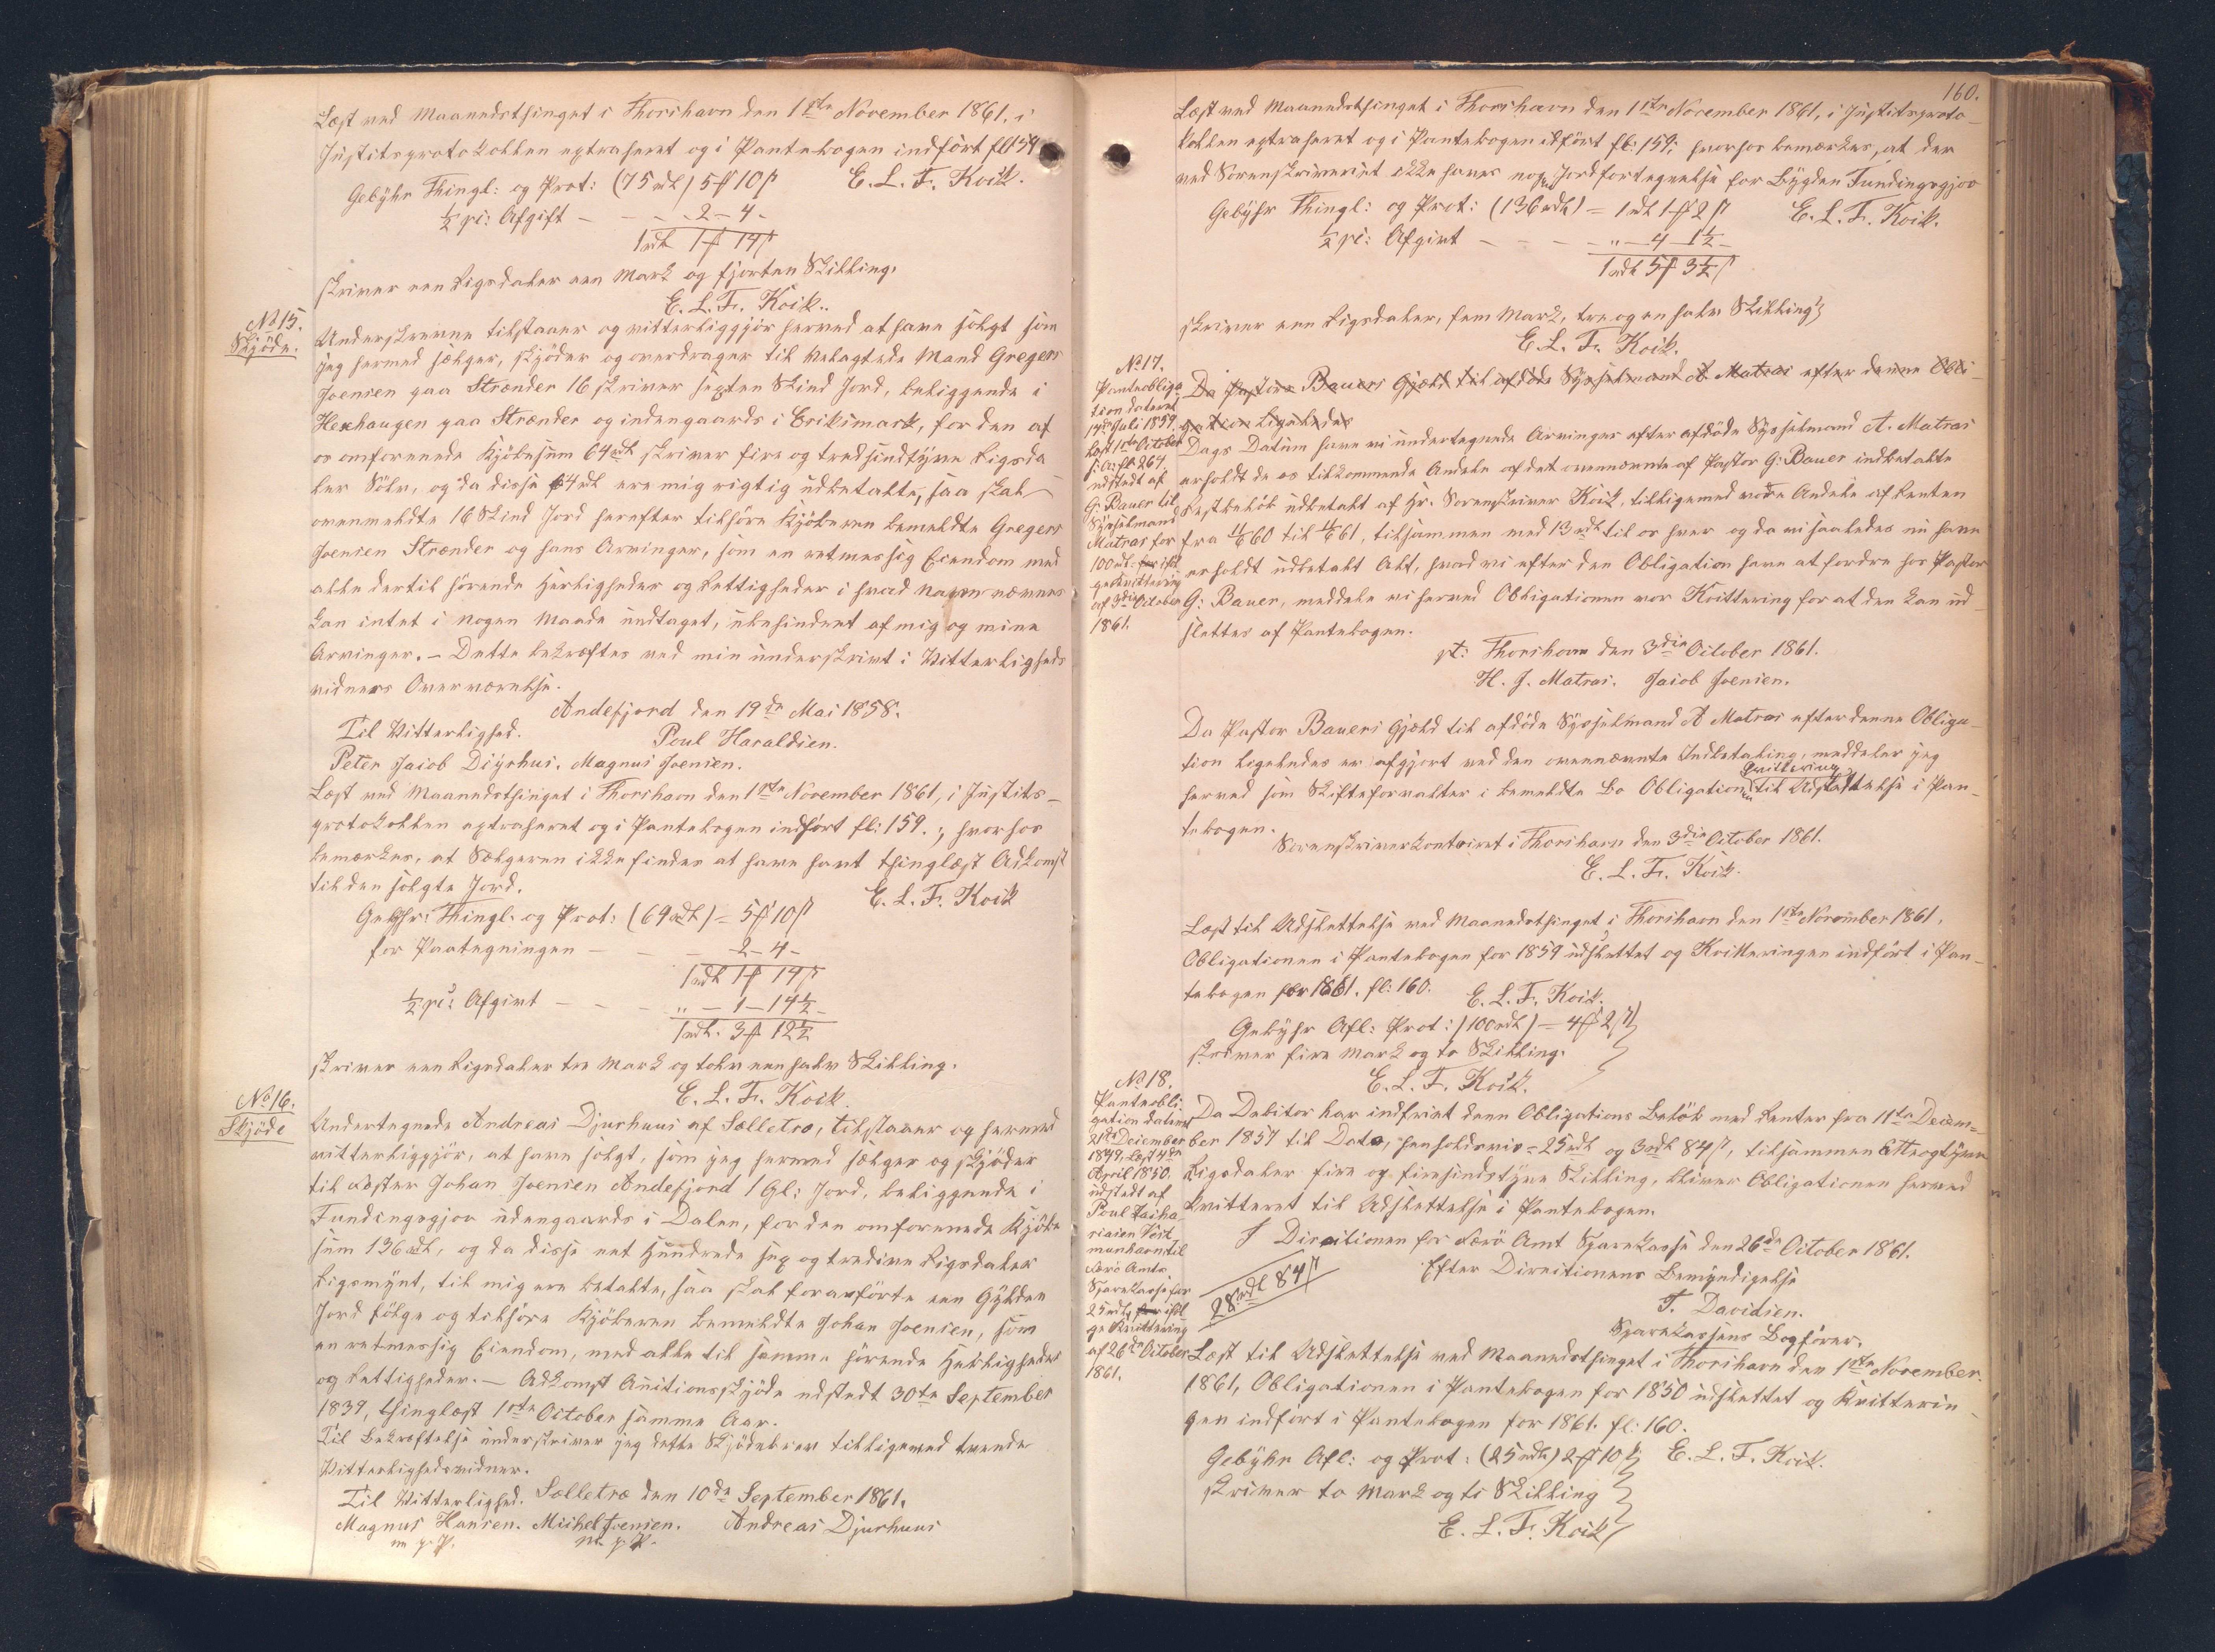 Læst ved Maanedsthinget i Thorshavn den 1ste November 1861, i
Justitsprotokollen extraheret og i Pantebogen indført fl 159
Gebyhr Thingl: og Prot: (75 rdl) 5 ₻ 10 ß E. L. F. Koik.
½ pc: Afgift - - - 2 - 4 -
1 rdl 1 ₻ 14 ß
skriver een Rigsdaler een Mark og fjorten Skilling.
E. L. F. Koik.
No 15.
Skjöde.
Underskrevne tilstaaer og vitterliggjör herved at have solgt som
jeg hermed sælger, skjöder og overdrager til velagtede Mand Gregers
Joensen paa Strænder 16 skriver sexten Skind Jord, beliggende i
Hexhaugen paa Strænder og indengaards i Eriksmark, for den af
os omforenede Kjöbesum 64 rdl skriver fire og tredsindstyve Rigsda-
ler Sölv, og da disse 64 rdl ere mig rigtig udbetalte, saa skal
ovenmeldte 16 Skind Jord herefter tilhøre Kjöberen bemeldte Gregers
Joensen Strænder og hans Arvinger, som en retmessig Eiendom med
alle dertil hörende Herligheder og Rettigheder i hvad Navn nævnes
kan intet i nogen Maade undtaget, ubehindret af mig og mine
Arvinger. - Dette bekræftes ved min underskrivt i Vitterligheds
vidners Overværelse.
Andefjord den 19de Mai 1858.
Til Vitterlighed. Poul Haraldsen.
Peter Jacob Diyrhus. Magnus Joensen.
Læst ved Maanedsthinget i Thorshavn den 1ste November 1861, i Justits-
protokollen extraheret og i Pantebogen indført fl: 159.; hvorhos
bemærkes, at Sælgeren ikke findes at have havt thinglæst Adkomst
til den solgte Jord. E. L. F. Koik
Gebyhr: Thingl. og Prot: (69 rdl) = 5 ₻ 10 ß
for Paategningen - - - 2 - 4 -
1 rdl 1 ₻ 14 ß
½ pc: Afgivt - - " - 1 - 14½ -
1 rdl. 3 ₻ 12½
skriver een Rigsdaler tre Mark og tolv een halv Skilling.
E. L. F. Koik.
No 16.
Skjöde
Undertegnede Andreas Djurhuus af Sælletræ, tilstaaer og herved
vitterliggjör, at have solgt, som jeg hermed sælger og skjöder
til Fæster Johan Joensen Andefjord 1 Gl: Jord, beliggende i
Fundingsgjov udengaards i Dalen, for den omforenede Kjöbe
sum 136 rdl, og da disse eet Hundrede sex og tredive Rigsdaler
Rigsmynt, til mig ere betalte, saa skal foranförte een Gylden
Jord fölge og tilhøre Kjöberen bemeldte Johan Joensen, som
en retmessig Eiendom, med alle til samme hörende Herligheder
og Rettigheder. - Adkomst Auctionsskjöde udstedt 30te September
1839, thinglæst 1ste October samme Aar.
Til Bekræftelse underskriver jeg dette Skjödebrev tilligemed tvende
Vitterlighedsvidner.
Til Vitterlighed. Sælletræ den 10de September 1861.
Magnus Hansen. Michel Joensen. Andreas Djurhuus
m. p. P. m. p. P.
160.
Læst ved Maanedsthinget i Thorshavn den 1ste November 1861, i Justitsproto-
kollen extraheret og i Pantebogen idført fl: 159; hvorhos bemærkes, at der
ved Sorenskriveriet ikke haves nogen Jordfortegnelse for Bygden Fundingsgjov
Gebyhr Thingl: og Prot: (136 rdl) = 1 rdl 1 ₻ 2 ß E. L. F. Koik.
½ pc: Afgivt - - - " - 4 - 1½ -
1 rdl 5 ₻ 3½ ß
skriver een Rigsdaler, fem Mark, tre og en halv Skilling
E. L. F. Koik.
No 17.
Panteobliga-
tion dateret
14de Juli 1859.
læst 1ste October
s: A: fl: 264.
udstedt af
G: Bauer til
Sysselmand
Matras for
100 rdl. for iföl
ge Kvittering
af 3die October
1861.
Da Pastor Bauers Gjæld til afdöde Sysselmand A Matras efter denne Obli-
gation ligeledes
Dags Datum have vi undertegnede Arvinger efter afdöde Sysselmand A. Matras
erholdt de os tilkommende Andele af det ovennævnte af Pastor G: Bauer indbetalte
Restbelöb udbetalt af Hr. Sorenskriver Koik, tilligemed vore Andele af Renten
fra 11/6 60 til 11/6 61, tilsammen med 13 rdl til os hver og da vi saaledes nu have
erholdt udbetalt Alt, hvad vi efter den Obligation have at fordre hos Pastor
G: Bauer, meddele vi herved Obligationen vor Kvittering for at den kan ud-
slettes af Pantebogen.
pt: Thorshavn den 3die October 1861.
H. J. Matras. Jacob Joensen.
Da Pastor Bauers Gjæld til afdöde Sysselmand A Matras efter denne Obliga-
tion ligeledes er afgjort ved den ovennævnte Indbetaling, meddeler jeg
herved som Skifteforvalter i bemeldte Bo Obligationen Qvittering til Udslettelse i Pan-
tebogen.
Sorenskriverkontoiret i Thorshavn den 3die October 1861.
E. L. F. Koik.
Læst til Udslettelse ved Maanedsthinget i Thorshavn den 1ste November 1861,
Obligationen i Pantebogen for 1859 udslettet og Kvitteringen indført i Pan-
tebogen for 1861. fl: 160. E. L. F. Koik.
Gebyhr Afl: Prot: (100 rdl) - 4 ₻ 2 ß
skriver fire Mark og to Skilling.
E. L. F. Koik.
No 18.
Panteobli-
gation dateret
21de December
1849, læst 4de
April 1850.
udstedt af
Poul Zacha-
riasen Vest-
manhavn til
Færö Amts
Sparekasse for
25 rdl, for iföl
ge Kvittering
af 26de October
1861.
Da Debitor har indfriet denn Obligations Belöb med Renter fra 11te Decem-
ber 1857 til Dato, henholdsvis = 25 rdl og 3 rdl 84 ß, tilsammen Otteogtyve
Rigsdaler fire og firesindstyve Skilling, bliver Obligationen herved
kvitteret til Udslettelse i Pantebogen.
I Directionen for Færö Amt Sparekasse den 26de October 1861.
28 rdl 84 ß
Efter Directionens Bemyndigelse
T. Davidsen.
Sparekassens Bogfører.
Læst til Udslettelse ved Maanedsthinget i Thorshavn den 1ste November
1861, Obligationen i Pantebogen for 1850 udslettet og Kvitterin-
gen indført i Pantebogen for 1861. fl: 160.
Gebyhr Afl: og Prot: (25 rdl) 2 ₻ 10 ß E. L. F. Koik.
skriver to Mark og ti Skilling
E. L. F. Koik